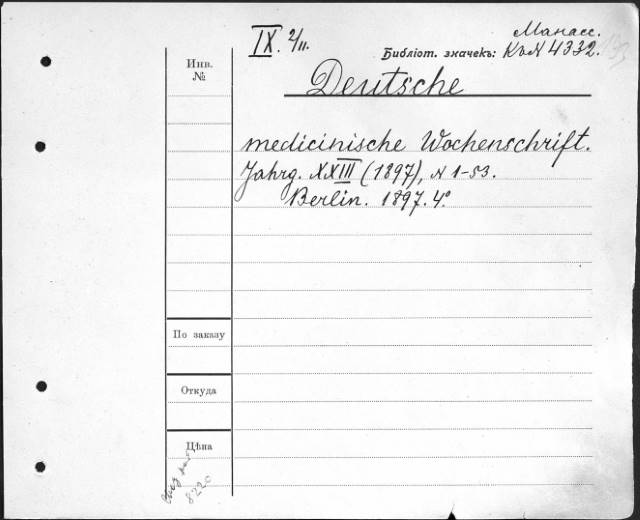 Манасс.
IX. 2/II.
Библіот. значекъ: К. № 4332.
Инв.
№
Deutsche
medicinische Wochenschrift.
Jahrg. XXIII (1897), N 1-53.
Berlin. 1897. 4°
По заказу
Откуда
Цѣна
8220